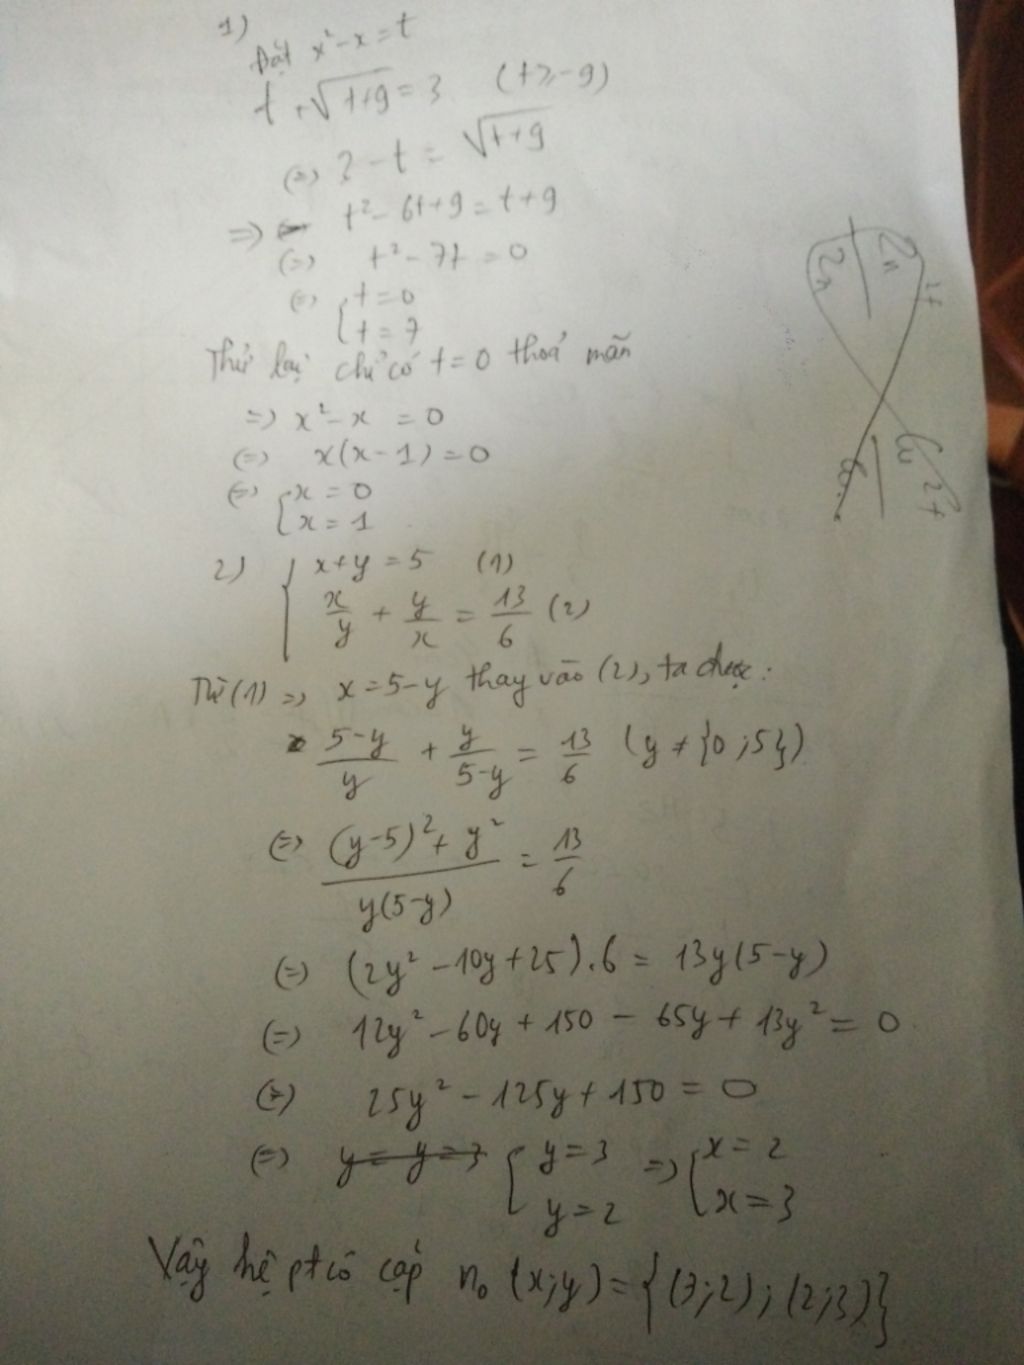 1)
Đặt x² - x = t
t + √(t+9) = 3 (t ≥ -9)
(=) 3 - t = √(t+9)
=> t² - 6t + 9 = t + 9
(=) t² - 7t = 0
(=) [ t = 0
t = 7
Thử lại chỉ có t = 0 thoả mãn
=) x² - x = 0
(=) x(x - 1) = 0
(=) [ x = 0
x = 1
2) { x + y = 5 (1)
x/y + y/x = 13/6 (2)
Từ (1) => x = 5 - y thay vào (2), ta được:
(5-y)/y + y/(5-y) = 13/6 (y ≠ {0;5})
(=) ((y-5)² + y²)/(y(5-y)) = 13/6
(=) (2y² - 10y + 25).6 = 13y(5-y)
(=) 12y² - 60y + 150 - 65y + 13y² = 0
(=) 25y² - 125y + 150 = 0
(=) y = y = 3 [ y = 3 => [ x = 2
y = 2 x = 3
Vậy hệ pt có cặp n₀ (x;y) = {(3;2); (2;3)}
2n 2n
2t